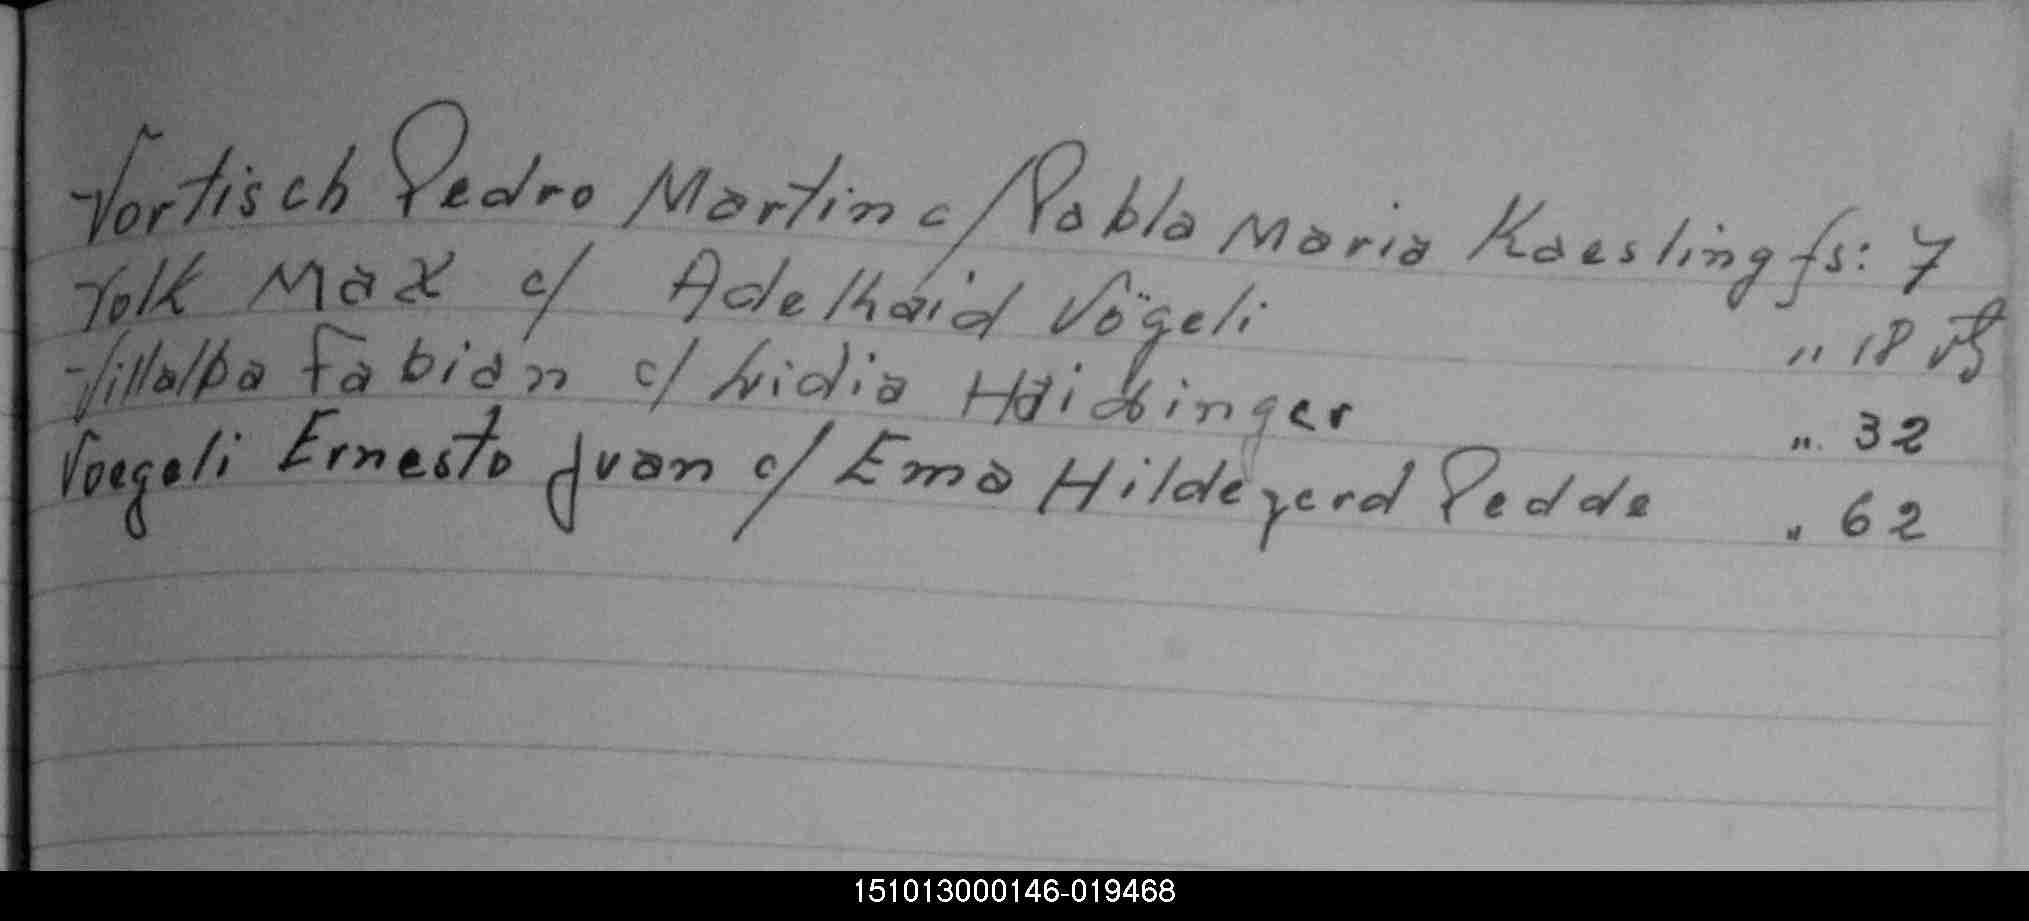 Vortisch Pedro Martin c/ Pabla Maria Kaesling fs: 7
Volk Max c/ Adelhaid Vögeli " 18 vß
Villalba Fabian c/ Lidia Haidinger " 32
Voegeli Ernesto Juan c/ Ema Hildegerd Pedde " 62
151013000146-019468